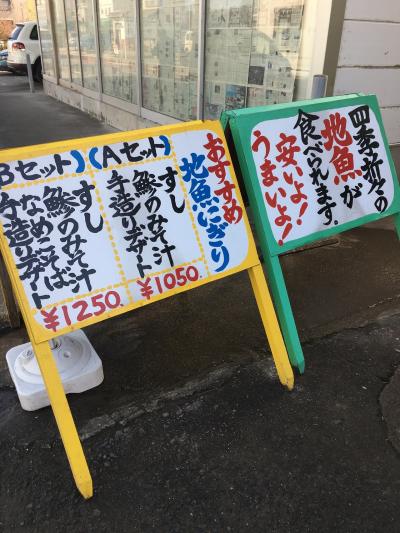 おすすめ
地魚にぎり
(Aセット)
すし
鯵のみそ汁
手造りデザート
¥1050.
Bセット)
すし
鯵のみそ汁
なめこそば
手造りデザート
¥1250.
四季折々の
地魚が
食べられます。
安いよ!
うまいよ!